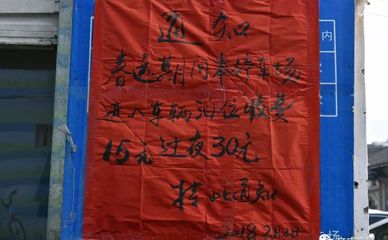 通知
春运期间本停车场
进入车辆泊位收费
15元过夜30元
特此通知
2018.2.1
内